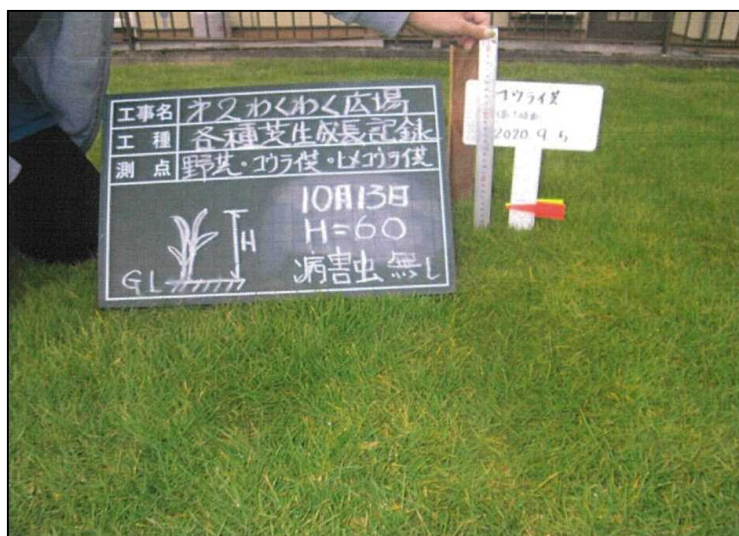 工事名 オ2わくわく広場
工種 各種芝生成長記録
測点 野芝・コウライ芝・ヒメコウライ芝
10月13日
H=60
病害虫無し
H
GL
コウライ芝
2020.9.5